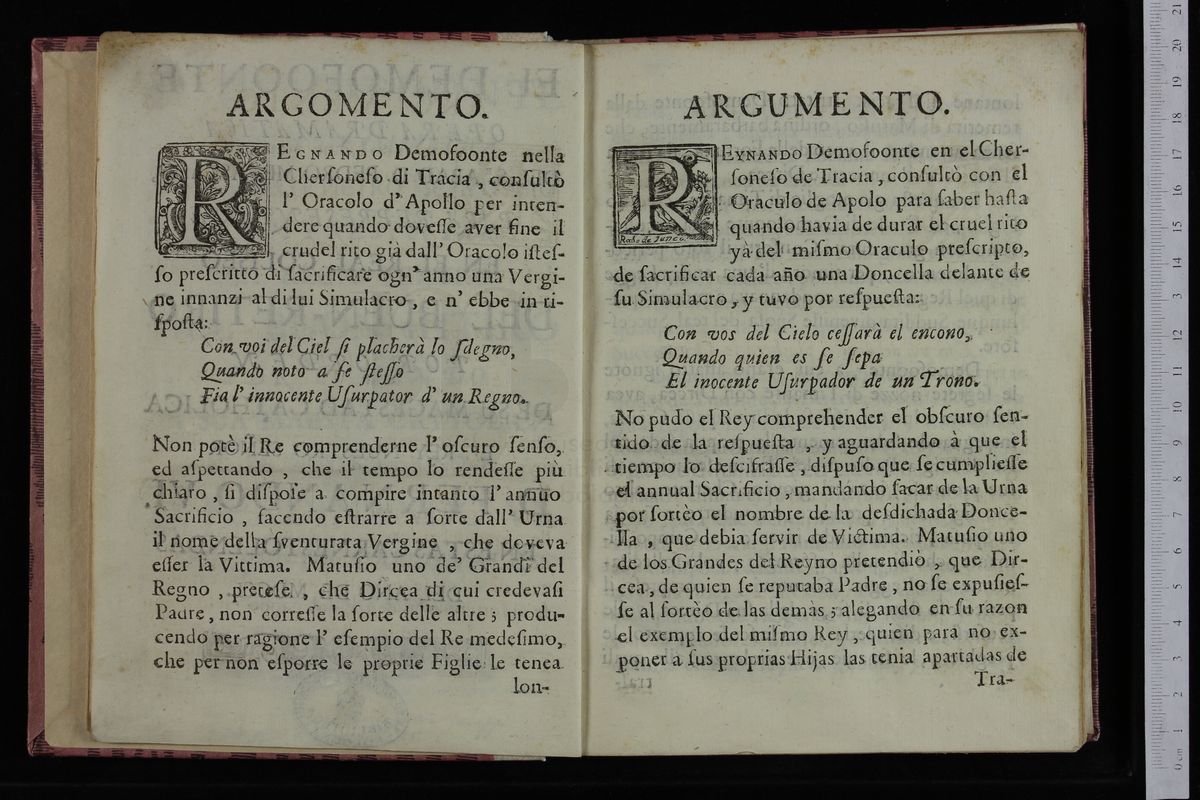 ARGOMENTO.
REGNANDO Demofoonte nella
Cherſoneſo di Tracia, conſultò
l' Oracolo d' Apollo per inten-
dere quando doveſſe aver fine il
crudel rito già dall' Oracolo iſteſ-
ſo preſcritto di ſacrificare ogn' anno una Vergi-
ne innanzi al di lui Simulacro, e n' ebbe in ri-
ſpoſta:
Con voi del Ciel ſi placherà lo ſdegno,
Quando noto a ſe ſteſſo
Fia l' innocente Uſurpator d' un Regno.
Non potè il Re comprenderne l' oſcuro ſenſo,
ed aſpettando, che il tempo lo rendeſſe più
chiaro, ſi diſpoſe a compire intanto l' annuo
Sacrificio, facendo eſtrarre a ſorte dall' Urna
il nome della ſventurata Vergine, che doveva
eſſer la Vittima. Matuſio uno de' Grandi del
Regno, preteſe, che Dircea di cui credevaſi
Padre, non correſſe la ſorte delle altre; produ-
cendo per ragione l' eſempio del Re medeſimo,
che per non eſporre le proprie Figlie le tenea
lon-
ARGUMENTO.
REYNANDO Demofoonte en el Cher-
ſoneſo de Tracia, conſultò con el
Oraculo de Apolo para ſaber haſta
quando havia de durar el cruel rito
yà del miſmo Oraculo preſcripto,
de ſacrificar cada año una Doncella delante de
ſu Simulacro, y tuvo por reſpueſta:
Con vos del Cielo ceſſarà el encono,
Quando quien es ſe ſepa
El inocente Uſurpador de un Trono.
No pudo el Rey comprehender el obſcuro ſen-
tido de la reſpueſta, y aguardando à que el
tiempo lo deſcifraſſe, diſpuſo que ſe cumplieſſe
el annual Sacrificio, mandando ſacar de la Urna
por ſortèo el nombre de la deſdichada Donce-
lla, que debia ſervir de Victima. Matuſio uno
de los Grandes del Reyno pretendiò, que Dir-
cea, de quien ſe reputaba Padre, no ſe expuſieſ-
ſe al ſortèo de las demàs; alegando en ſu razon
el exemplo del miſmo Rey, quien para no ex-
poner a ſus proprias Hijas las tenia apartadas de
Tra-